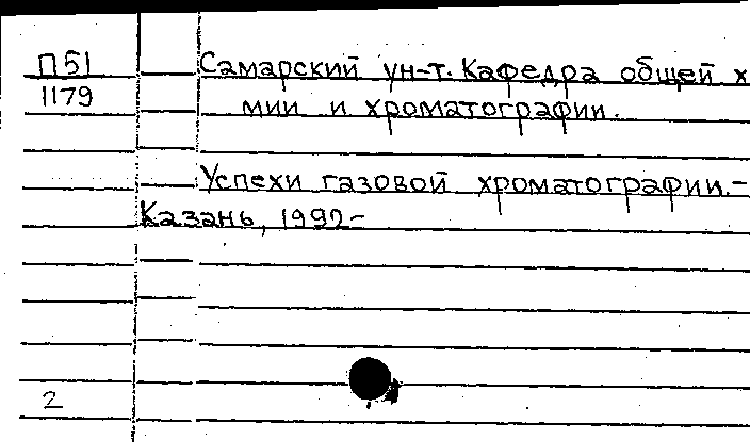 П51 Самарский ун-т. Кафедра общей х
1179 мии и хроматографии.
Успехи газовой хроматографии.-
Казань, 1992-
2